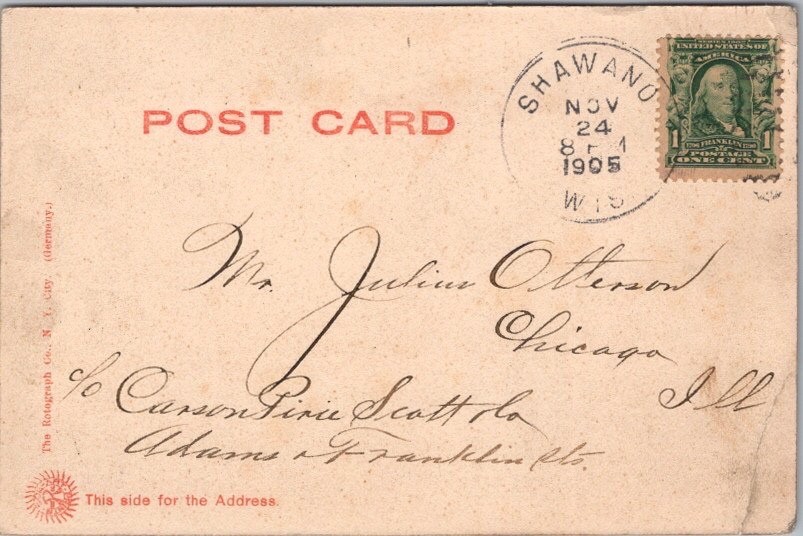 POST CARD
SHAWANO
NOV
24
1905
WIS
UNITED STATES OF
AMERICA
1 FRANKLIN 1
POSTAGE
ONE CENT
Mr. Julius Otterson
Chicago
Ill
c/o Carson Pirie Scott & Co
Adams & Franklin Sts.
The Rotograph Co., N. Y. City. (Germany.)
This side for the Address.